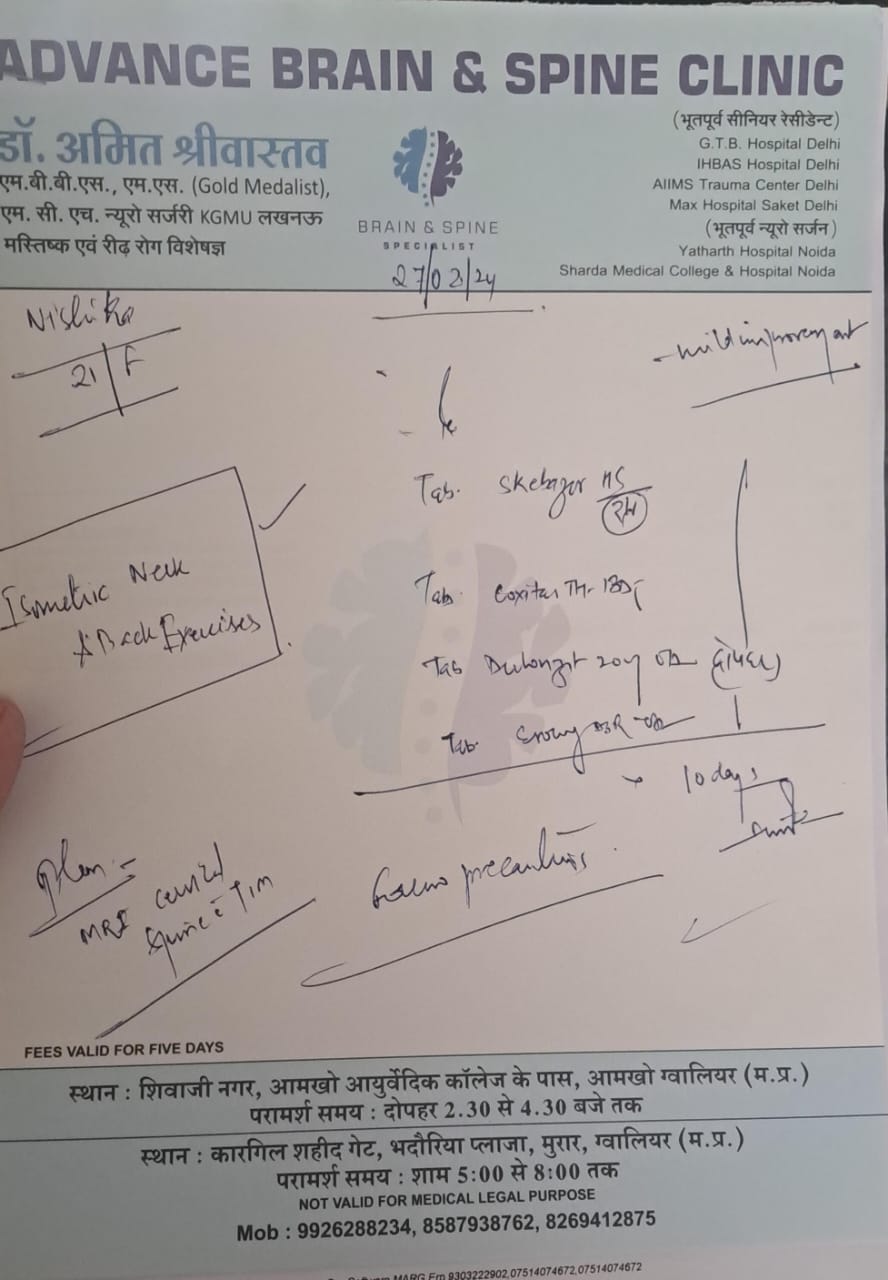 ADVANCE BRAIN & SPINE CLINIC
डॉ. अमित श्रीवास्तव
एम.बी.बी.एस., एम.एस. (Gold Medalist),
एम. सी. एच. न्यूरो सर्जरी KGMU लखनऊ
मस्तिष्क एवं रीढ़ रोग विशेषज्ञ
BRAIN & SPINE
SPECIALIST
(भूतपूर्व सीनियर रेसीडेन्ट)
G.T.B. Hospital Delhi
IHBAS Hospital Delhi
AIIMS Trauma Center Delhi
Max Hospital Saket Delhi
(भूतपूर्व न्यूरो सर्जन)
Yatharth Hospital Noida
Sharda Medical College & Hospital Noida
27/03/24
Nishika
21/F
- mild improvement
Tab.
Tab.
Isometric Neck
& Back Exercises
Tab 20mg (दोपहर)
Tab.
10 days
Plan :-
MRI
Spine
precautions
FEES VALID FOR FIVE DAYS
स्थान : शिवाजी नगर, आमखो आयुर्वेदिक कॉलेज के पास, आमखो ग्वालियर (म.प्र.)
परामर्श समय : दोपहर 2.30 से 4.30 बजे तक
स्थान : कारगिल शहीद गेट, भदौरिया प्लाजा, मुरार, ग्वालियर (म.प्र.)
परामर्श समय : शाम 5:00 से 8:00 तक
NOT VALID FOR MEDICAL LEGAL PURPOSE
Mob : 9926288234, 8587938762, 8269412875
MARG Erp 9303222902,07514074672,07514074672